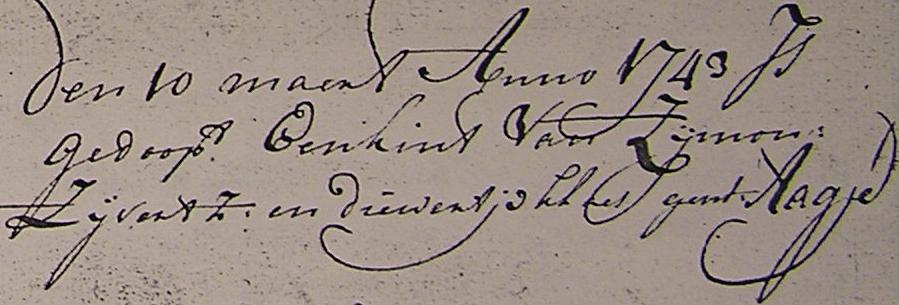 Den 10 maert Anno 1743 Is
gedoopt Een kint Van Zijmon
Zijvertz: en diewertje gent Aagje